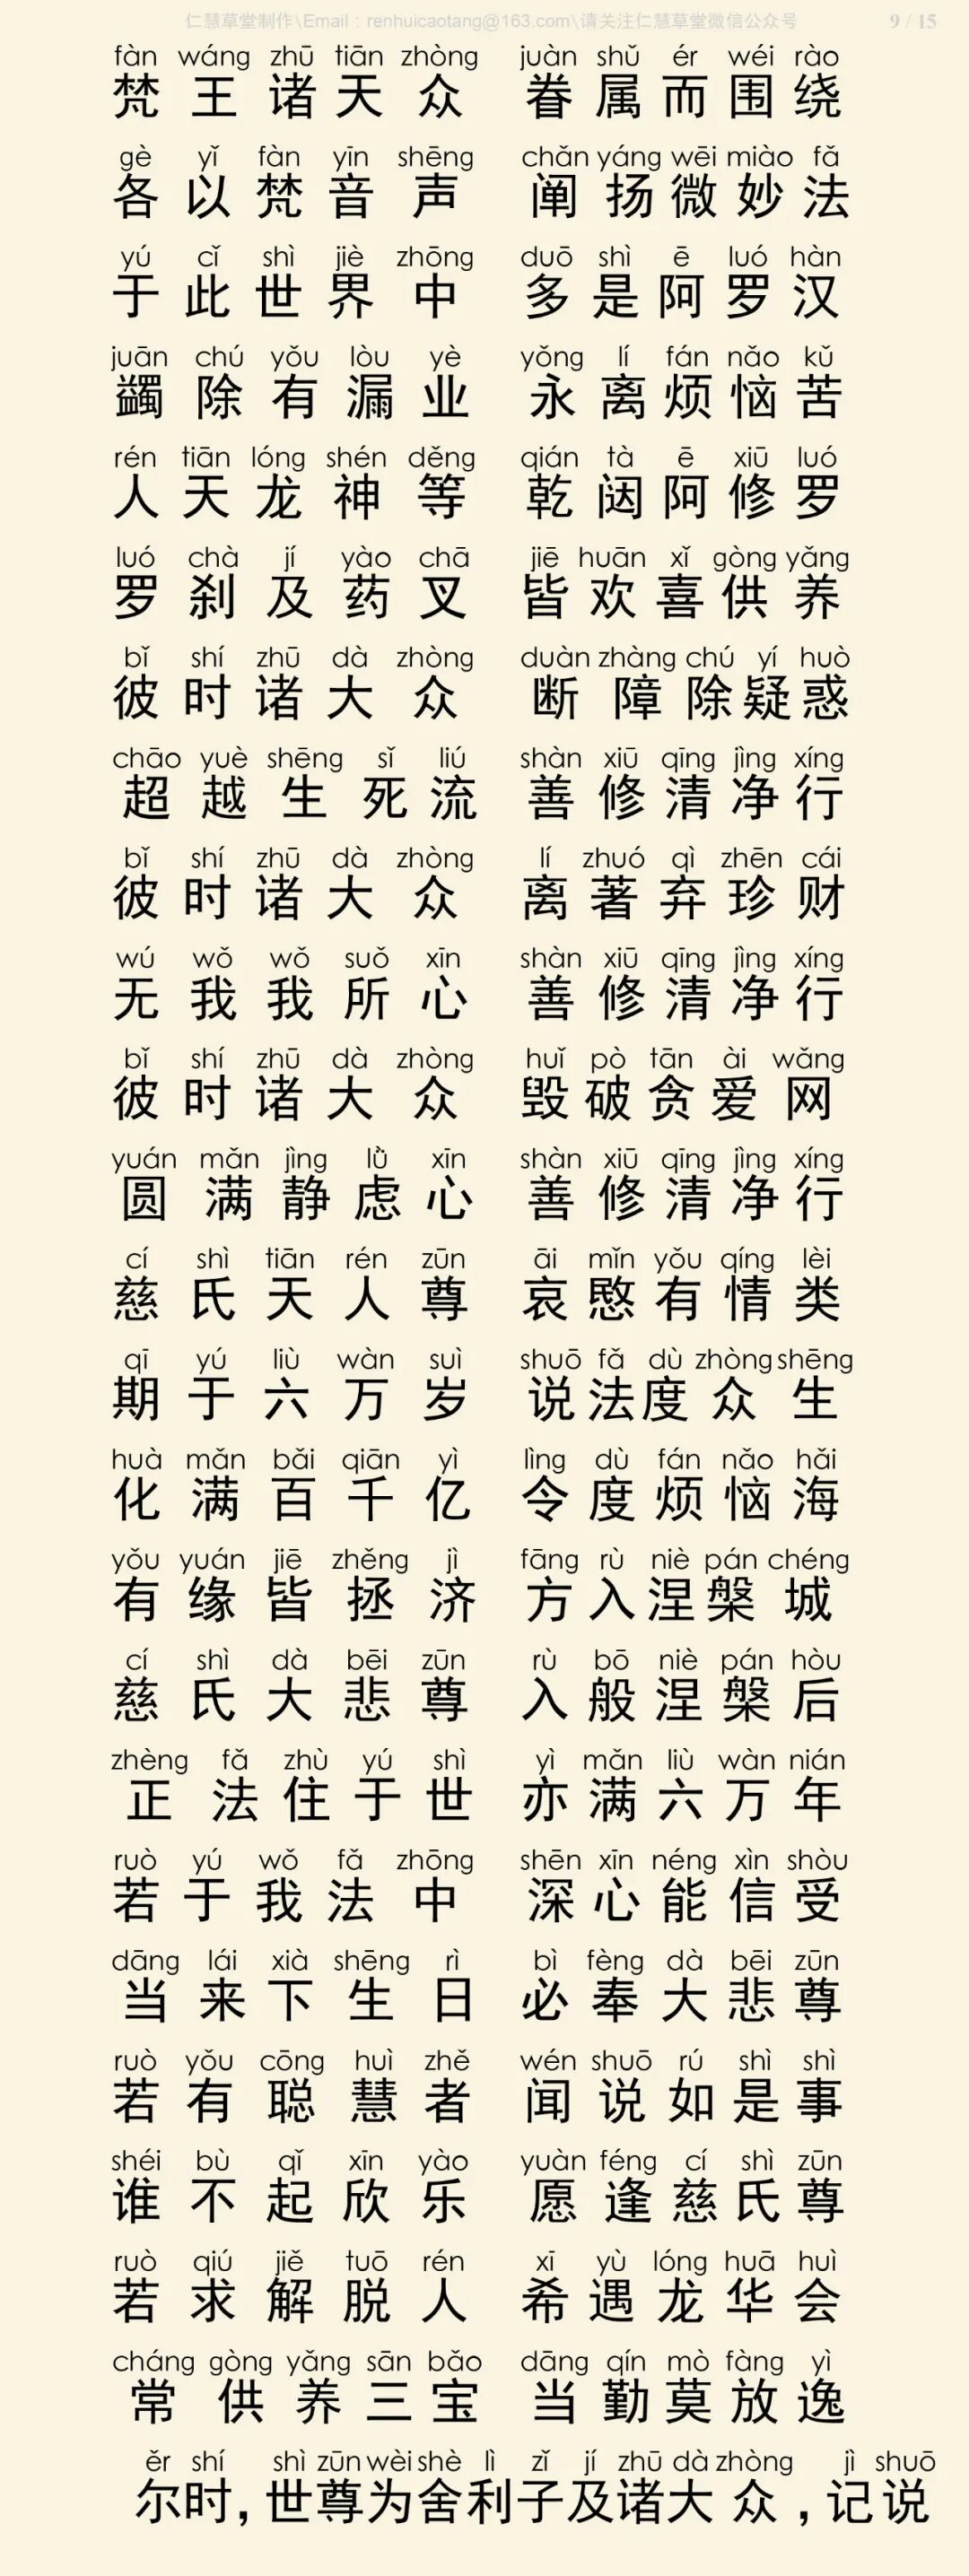 仁慧草堂制作\Email：renhuicaotang@163.com\请关注仁慧草堂微信公众号 9 / 15
fàn wáng zhū tiān zhòng juàn shǔ ér wéi rào
梵王诸天众 眷属而围绕
gè yǐ fàn yīn shēng chǎn yáng wēi miào fǎ
各以梵音声 阐扬微妙法
yú cǐ shì jiè zhōng duō shì ē luó hàn
于此世界中 多是阿罗汉
juān chú yǒu lòu yè yǒng lí fán nǎo kǔ
蠲除有漏业 永离烦恼苦
rén tiān lóng shén děng qián tà ē xiū luó
人天龙神等 乾闼阿修罗
luó chà jí yào chā jiē huān xǐ gòng yǎng
罗刹及药叉 皆欢喜供养
bǐ shí zhū dà zhòng duàn zhàng chú yí huò
彼时诸大众 断障除疑惑
chāo yuè shēng sǐ liú shàn xiū qīng jìng xíng
超越生死流 善修清净行
bǐ shí zhū dà zhòng lí zhuó qì zhēn cái
彼时诸大众 离著弃珍财
wú wǒ wǒ suǒ xīn shàn xiū qīng jìng xíng
无我我所心 善修清净行
bǐ shí zhū dà zhòng huǐ pò tān ài wǎng
彼时诸大众 毁破贪爱网
yuán mǎn jìng lǜ xīn shàn xiū qīng jìng xíng
圆满静虑心 善修清净行
cí shì tiān rén zūn āi mǐn yǒu qíng lèi
慈氏天人尊 哀愍有情类
qī yú liù wàn suì shuō fǎ dù zhòng shēng
期于六万岁 说法度众生
huà mǎn bǎi qiān yì lìng dù fán nǎo hǎi
化满百千亿 令度烦恼海
yǒu yuán jiē zhěng jì fāng rù niè pán chéng
有缘皆拯济 方入涅槃城
cí shì dà bēi zūn rù bō niè pán hòu
慈氏大悲尊 入般涅槃后
zhèng fǎ zhù yú shì yì mǎn liù wàn nián
正法住于世 亦满六万年
ruò yú wǒ fǎ zhōng shēn xīn néng xìn shòu
若于我法中 深心能信受
dāng lái xià shēng rì bì fèng dà bēi zūn
当来下生日 必奉大悲尊
ruò yǒu cōng huì zhě wén shuō rú shì shì
若有聪慧者 闻说如是事
shéi bù qǐ xīn yào yuàn féng cí shì zūn
谁不起欣乐 愿逢慈氏尊
ruò qiú jiě tuō rén xī yù lóng huā huì
若求解脱人 希遇龙华会
cháng gòng yǎng sān bǎo dāng qín mò fàng yì
常供养三宝 当勤莫放逸
ěr shí shì zūn wèi shè lì zǐ jí zhū dà zhòng jì shuō
尔时，世尊为舍利子及诸大众，记说